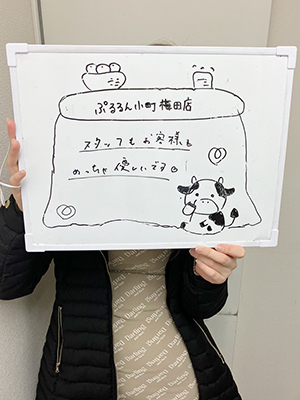 ぷるるん小町梅田店
スタッフもお客様も
めっちゃ優しいです
Darling
Darling
Darling
Darling